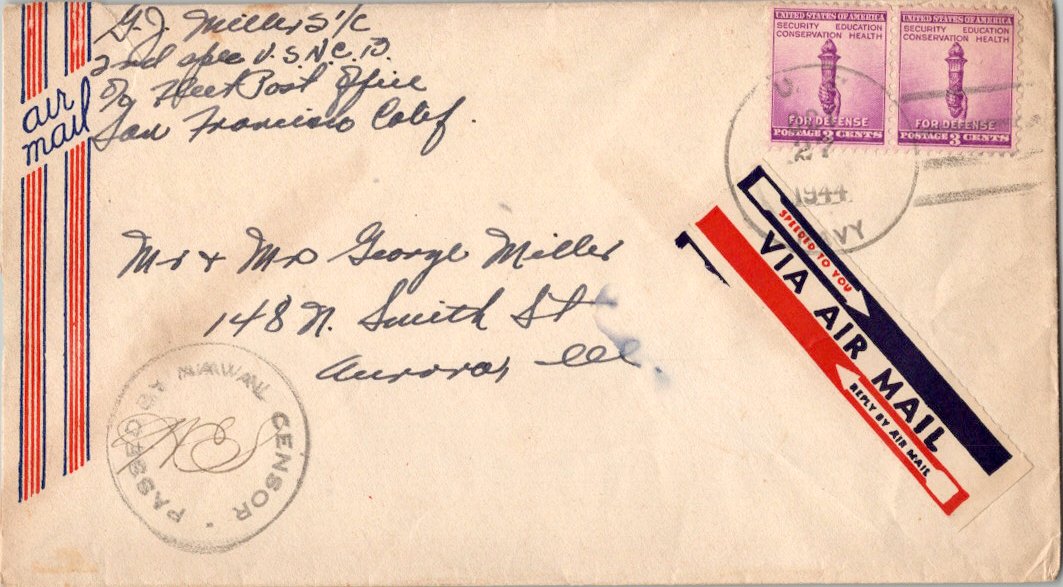 G. J. Miller S 1/c
2nd spec U.S.N.C.B.
c/o Fleet Post Office
San Francisco Calif.
air
mail
UNITED STATES OF AMERICA
SECURITY EDUCATION
CONSERVATION HEALTH
FOR DEFENSE
POSTAGE 3 CENTS
UNITED STATES OF AMERICA
SECURITY EDUCATION
CONSERVATION HEALTH
FOR DEFENSE
POSTAGE 3 CENTS
27
1944
NAVY
SPEEDED TO YOU
VIA AIR MAIL
REPLY BY AIR MAIL
Mr + Mrs George Miller
148 N. Smith St
Aurora, Ill
PASSED BY NAVAL CENSOR